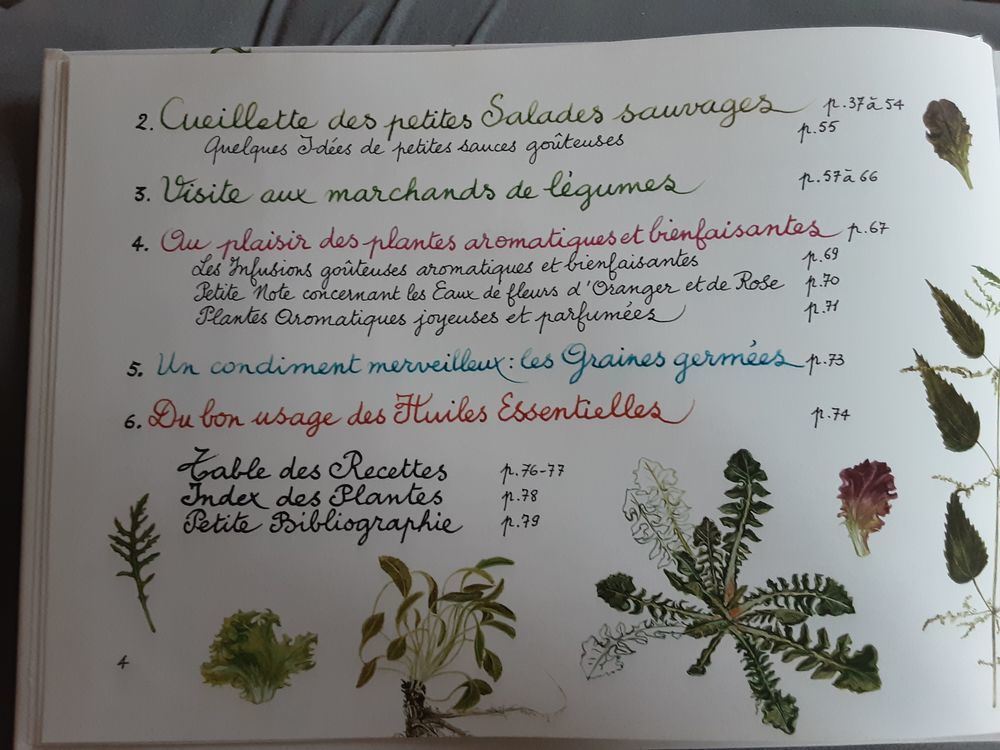 2. Cueillette des petites Salades sauvages p.37 à 54
Quelques Idées de petites sauces goûteuses p.55
3. Visite aux marchands de légumes p.57 à 66
4. Au plaisir des plantes aromatiques et bienfaisantes p.67
Les Infusions goûteuses aromatiques et bienfaisantes p.69
Petite Note concernant les Eaux de fleurs d'Oranger et de Rose p.70
Plantes Aromatiques joyeuses et parfumées p.71
5. Un condiment merveilleux : les Graines germées p.73
6. Du bon usage des Huiles Essentielles p.74
Table des Recettes p.76-77
Index des Plantes p.78
Petite Bibliographie p.79
4